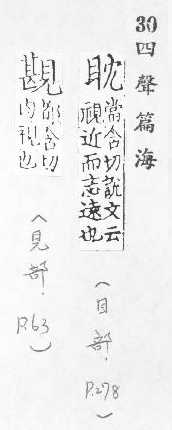 30 四聲篇海
眈 當含切說文云
視近而志遠也
(目部.
P.278)
都含切
内視也
(見部.
P.63)